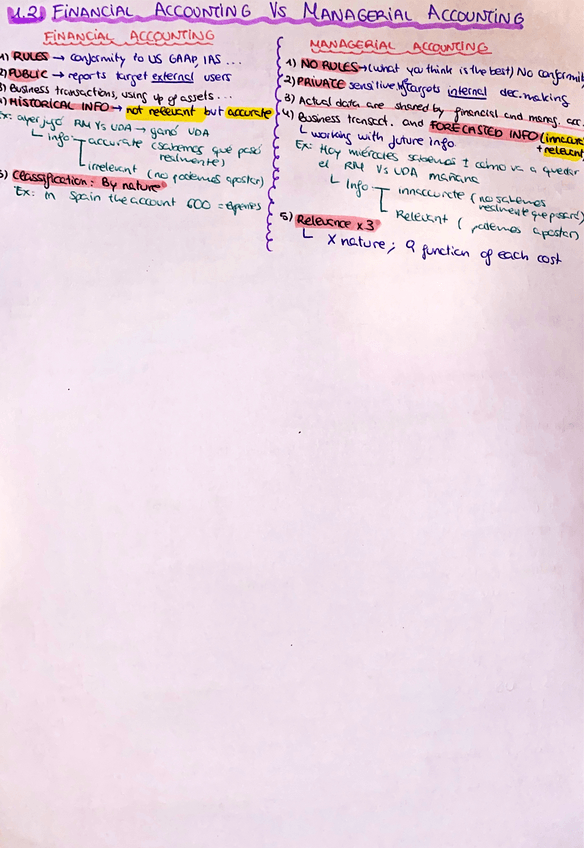 4.2) FINANCIAL ACCOUNTING VS MANAGERIAL ACCOUNTING
FINANCIAL ACCOUNTING
1) RULES → conformity to US GAAP, IAS ...
2) PUBLIC → reports target external users
3) Business transactions, using up of assets...
4) HISTORICAL INFO → not relevant but accurate
Ex: ayer jugó RM VS UDA → ganó UDA
info: accurate (sabemos qué pasó
realmente)
irrelevant (no podemos apostar)
5) Classification: By nature
Ex: in Spain the account 600 =
MANAGERIAL ACCOUNTING
1) NO RULES → (what you think is the best) No conformit
2) PRIVATE sensitive targets internal dec. making
3) Actual data are shared by financial and manag. acc.
4) Business transact. and FORECASTED INFO (innacura
+ relevant
working with future info
Ex: Hoy miércoles sabemos cómo va a quedar
el RM VS UDA mañana
Info innaccurate (no sabemos
realmente que pasará)
Relevant (podemos apostar)
5) Relevance x 3
X nature; function of each cost